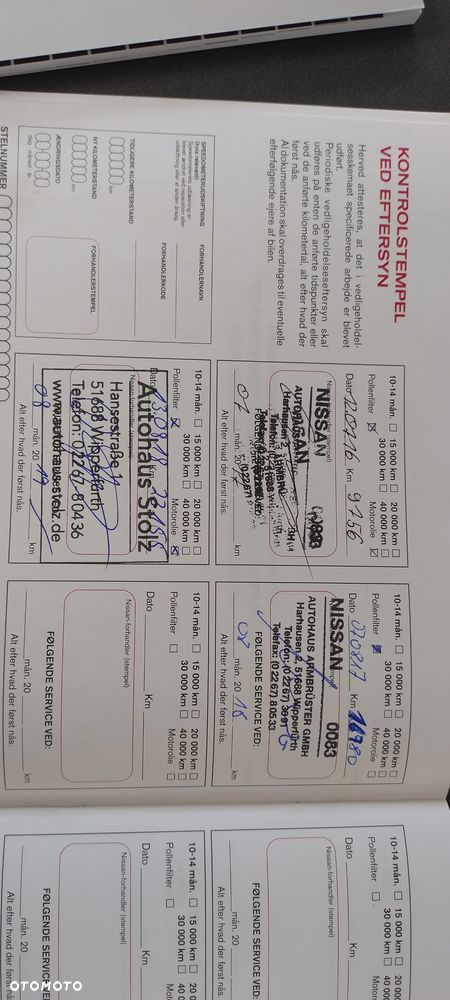 KONTROLSTEMPEL
VED EFTERSYN
Herved attesteres, at det i vedligeholdel-
sesskemaet specificerede arbejde er blevet
udført.
Periodiske vedligeholdelseseftersyn skal
udføres på enten de anførte tidspunkter eller
ved de anførte kilometertal, alt efter hvad der
først nås.
Al dokumentation skal overdrages til eventuelle
efterfølgende ejere af bilen.
SPEEDOMETERUDSKIFTNING
(hvis relevant)
Speedometerets udlæsning er
blevet ændret ved reparation eller
udskiftning eller af anden årsag.
FORHANDLERNAVN
TIDLIGERE KILOMETERSTAND
km
FORHANDLERKODE
NY KILOMETERSTAND
km
FORHANDLERSTEMPEL
ÆNDRINGSDATO
dag måned år
STELNUMMER
10-14 mån. 15 000 km 20 000 km
30 000 km 40 000 km
Pollenfilter Motorolie
Dato 12.07.16 Km 9756
NISSAN
AUTOHAUS
Harhausen 2,
07 mån. 20 17
Alt efter hvad der først nås. km
10-14 mån. 15 000 km 20 000 km
30 000 km 40 000 km
Pollenfilter Motorolie
Dato
Nissan-forhandler (stempel)
Autohaus Stolz
Hansestraße
51688 Wipperfürth
Telefon: 02267-80436
www.autohausstolz.de
08 mån. 20 19
Alt efter hvad der først nås. km
10-14 mån. 15 000 km 20 000 km
30 000 km 40 000 km
Pollenfilter Motorolie
Dato 070817 Km
NISSAN 0083
AUTOHAUS ARMBRÜSTER GMBH
Harhausen 2, 51688 Wipperfürth
Telefon: (02267) 3091
Telefax: (02267) 80533
FØLGENDE SERVICE VED:
08 mån. 20 18
Alt efter hvad der først nås. km
10-14 mån. 15 000 km 20 000 km
30 000 km 40 000 km
Pollenfilter Motorolie
Dato Km
Nissan-forhandler (stempel)
FØLGENDE SERVICE VED:
mån. 20
Alt efter hvad der først nås. km
10-14 mån. 15 000 km
30 000 km
Pollenfilter
Dato
Nissan-forhandler (stempel)
FØLGENDE SERVICE
mån. 20
Alt efter hvad der først
10-14 mån. 15 000 km 20 000
30 000 km 40 000
Pollenfilter Motorolie
Dato Km
Nissan-forhandler (stempel)
FØLGENDE SERVICE VE
mån. 20
Alt efter hvad der først nås.
OTOMOTO